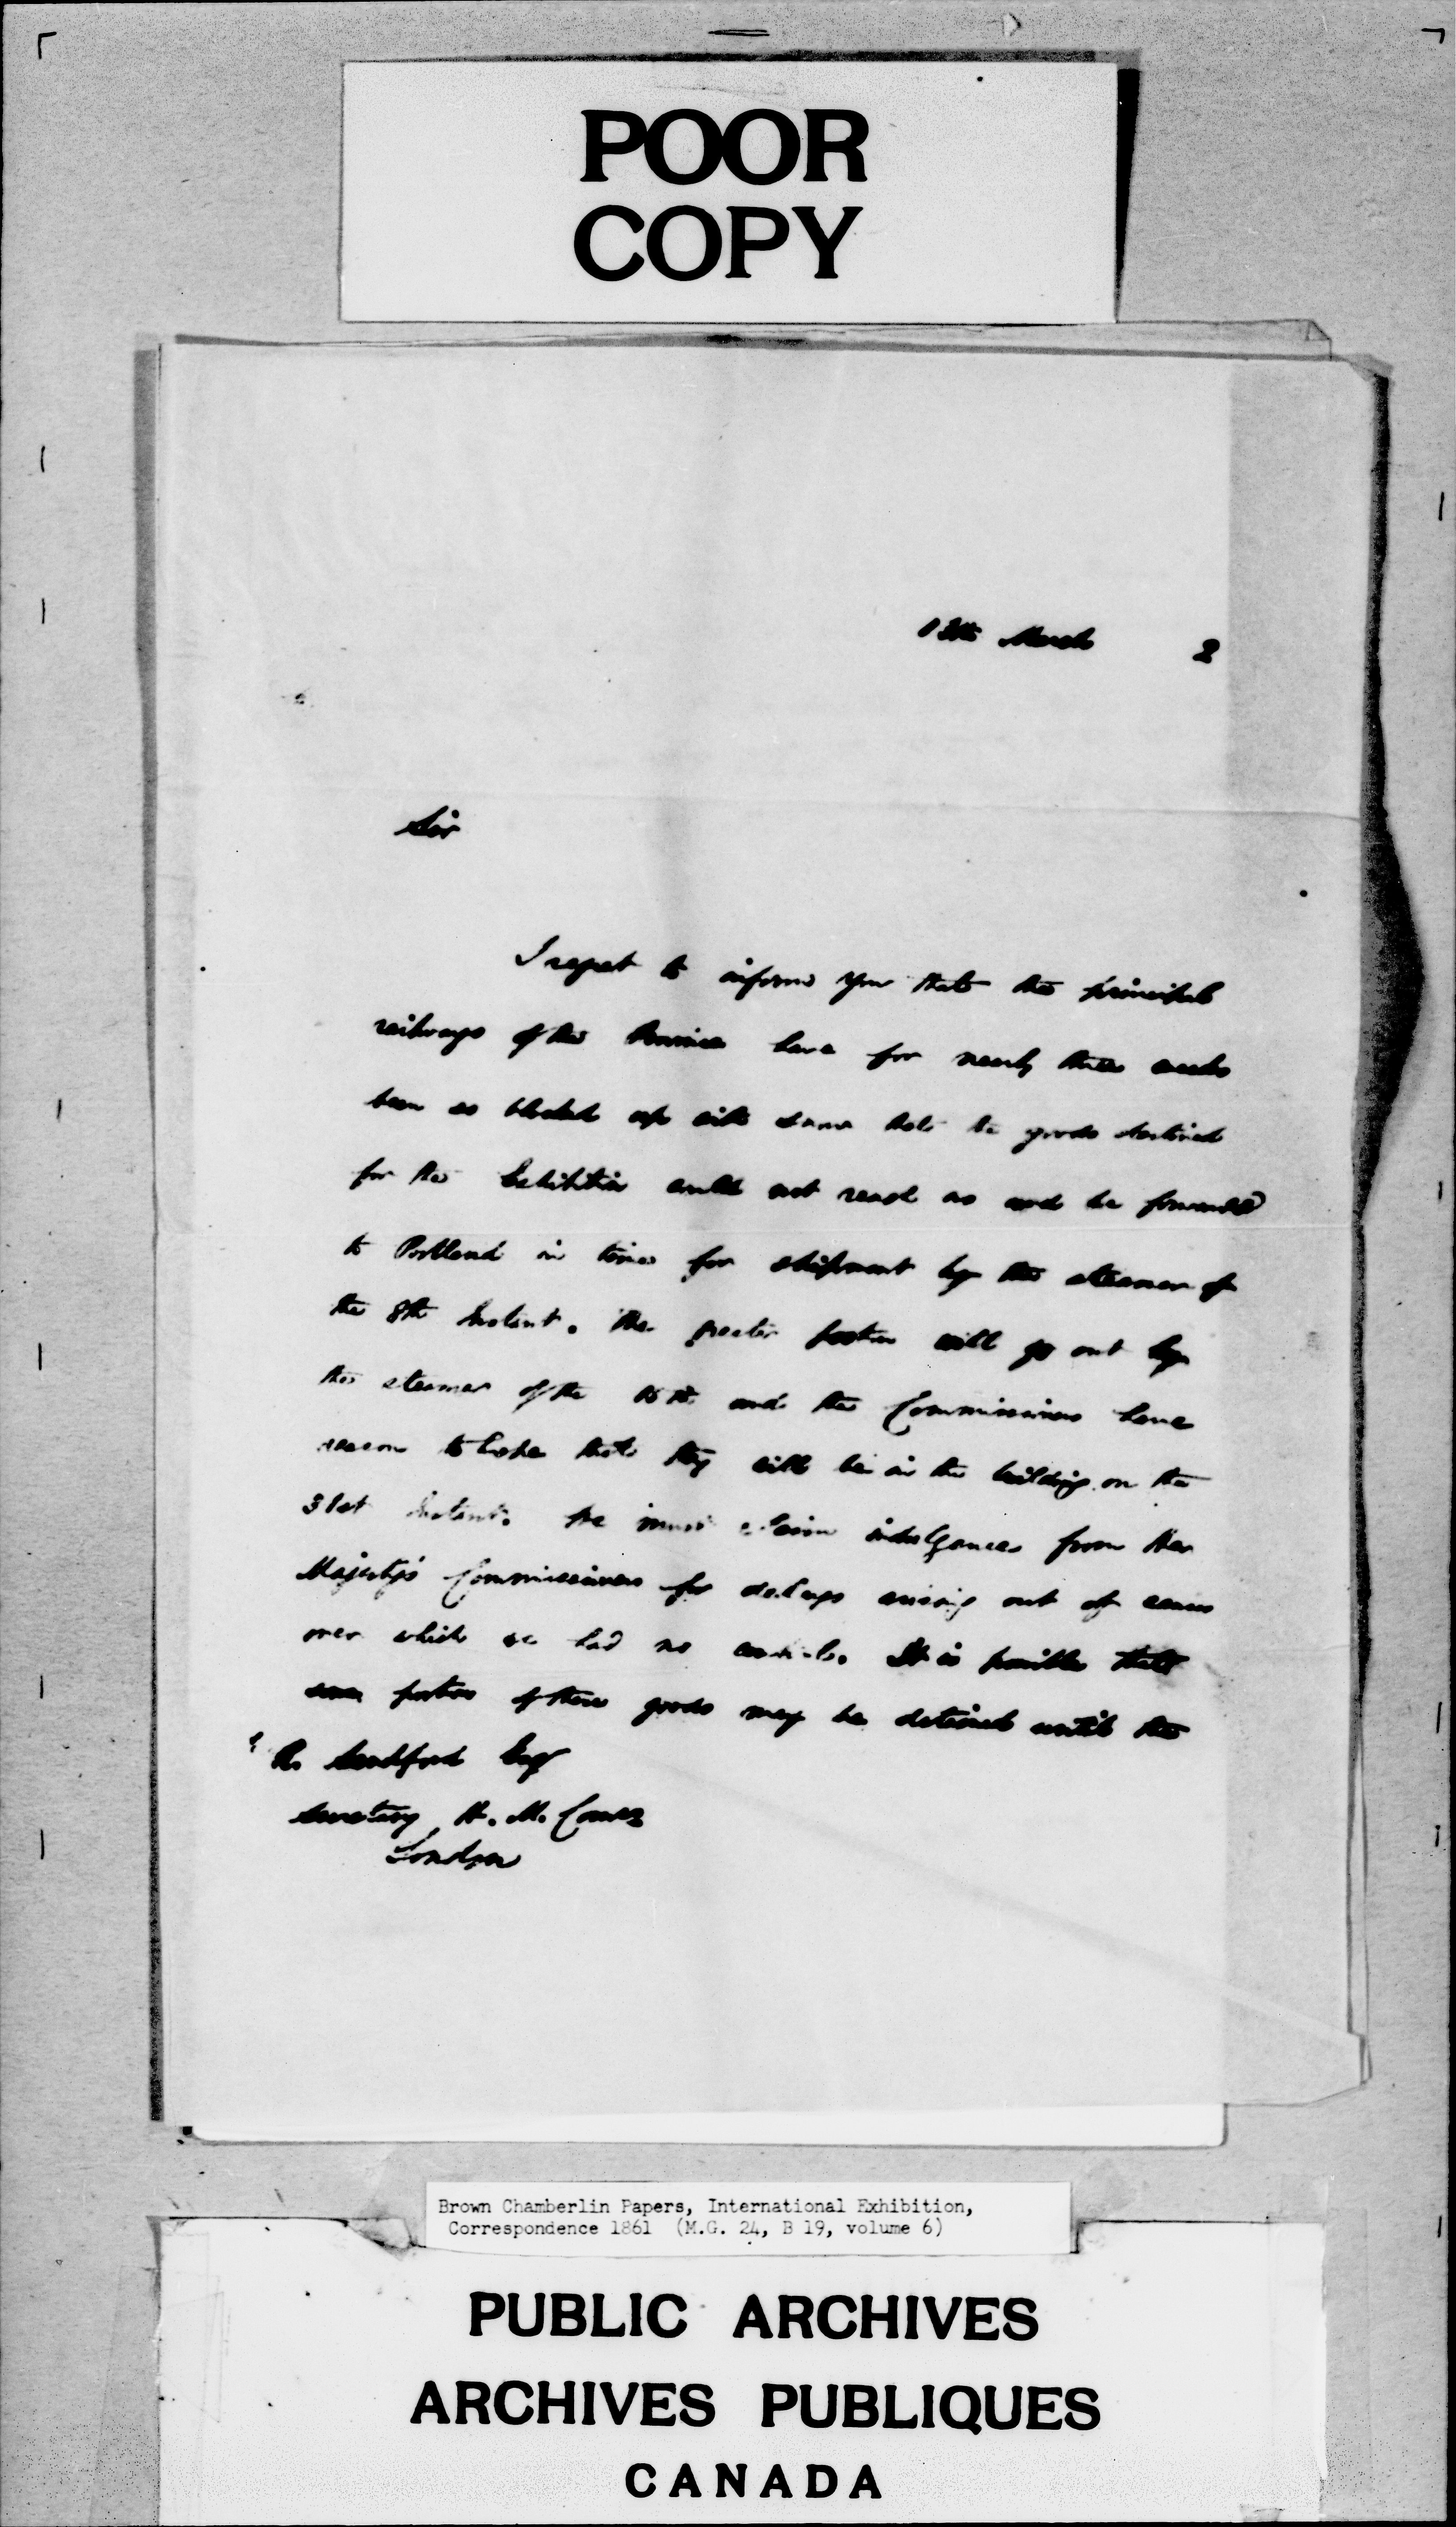 POOR
COPY
13th March 2
Sir
I regret to inform you that the principal
railways of the Province have for nearly three weeks
been so blocked up with snow that the goods destined
for the Exhibition could not reach us and be forwarded
to Portland in time for shipment by the steamer of
the 8th Instant. The greater portion will go out by
the steamer of the and the Commissioners have
reason to hope that they will be in the building on the
31st Instant. We must claim indulgences from Her
Majesty's Commissioners for delays arising out of causes
over which we had no control. It is possible that
some portion of these goods may be detained until the
R. Sandford Esq
Secretary H. M. Comrs
London
Brown Chamberlin Papers, International Exhibition,
Correspondence 1861 (M.G. 24, B 19, volume 6)
PUBLIC ARCHIVES
ARCHIVES PUBLIQUES
CANADA